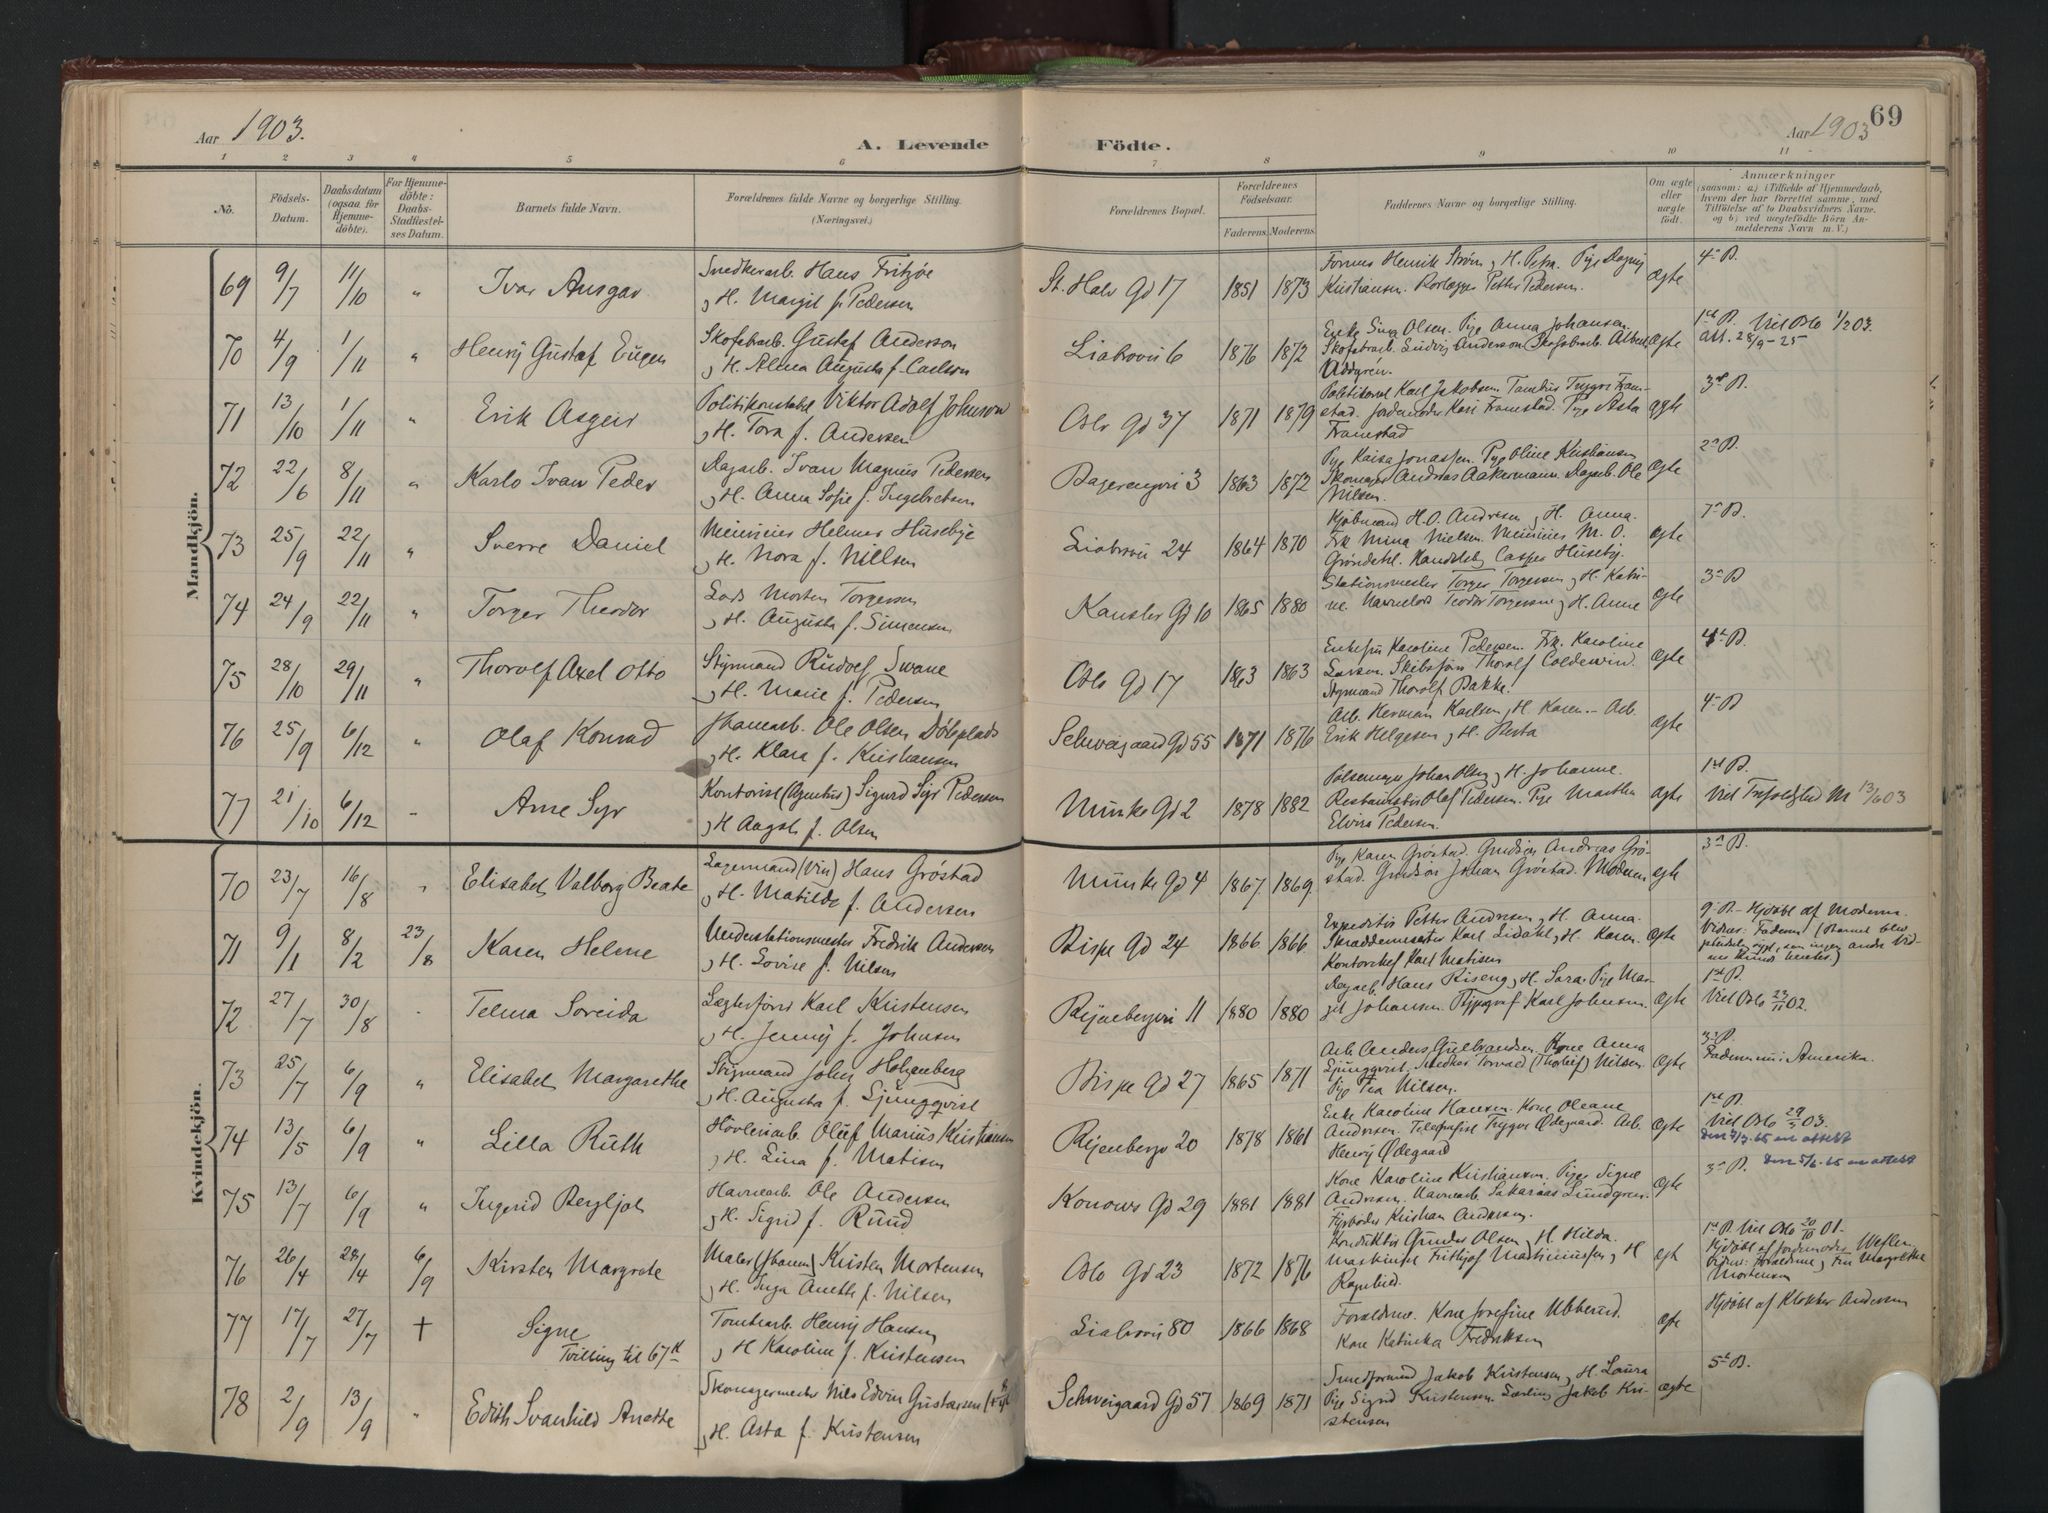 Aar 1903.
A. Levende Födte.
Aar 1903
69
1 2 3 4 5 6 7 8 9 10 11
No.
Födsels-Datum.
Daabsdatum (ogsaa for Hjemmedöbte).
For Hjemmedöbte: Daabs-Stadfæstelses Datum.
Barnets fulde Navn.
Forældrenes fulde Navne og borgerlige Stilling. (Næringsvei.)
Forældrenes Bopæl.
Forældrenes Födselsaar.
Faderens. Moderens.
Faddernes Navne og borgerlige Stilling.
Om ægte eller uægte födt.
Anmærkninger
(saasom: a) i Tilfælde af Hjemmedaab, hvem der har forrettet samme, med Tilföielse af to Daabsvidners Navne, og b) ved uægtefödte Börn Anmelderens Navn m. V.)
Mandkjön.
69 9/7 11/10 " Ivar Ansgar
Snedkerarb. Hans Fritzöe
og H. Margit f. Pedersen
St. Halv Gd 17 1851 1873
Henrik Strøm og H. Petra. Pige Dagny
Kristiansen. Rørlægger Petter Pedersen.
Ægte 4de B.
70 4/9 1/11 " Henry Gustaf Eugen
Skofabarb. Gustaf Anderson
og H. Alma Augusta f. Carlson
Liabrovei 6 1876 1872
Enke Sina Olsen. Pige Anna Johansen.
Skofabarb. Ludvig Anderson Skofabarb. Albert
Uddgren.
Ægte 1ste B. Viel Oslo 1/2 03.
Att. 28/9-25
71 13/10 1/11 " Erik Asgeir
Politikonstabel Viktor Adolf Johnson
og H. Tora f. Andersen
Oslo Gd 37 1871 1879
Karl Jakobsen. Trygve Fram-
stad. Jordmoder Kari Framstad. Pige Asta
Framstad
ægte 3de B.
72 22/6 8/11 " Karlo Ivan Peder
Dagarb. Ivan Magnus Pedersen
og H. Anna Sofie f. Ingebretsen
3 1863 1872
Pige Kaisa Jonassen. Pige Oline Kristiansen
Skomager Andreas Aakermann Dagarb. Ole
Nilsen.
Ægte 2det B.
73 25/9 22/11 " Sverre Daniel
Helmer Huseby
og H. Nora f. Nillsen
Liabrovei 24 1864 1870
Kjøbmand H. O. Andresen og H. Anna.
Frk Mina Nielsen. M. O.
Grøndahl. Handelsb. Casper Huseby.
Ægte 7de B.
74 24/9 22/11 " Torger Theodor
Lods Morten Torgersen
og H. Augusta f. Simensen
Kansler Gd 10 1865 1880
Stationsmester Torger Torgersen og H. Katri-
ne. Havnelods Teodor Torgersen og H. Anne
Ægte 3de B
75 28/10 29/11 " Thorolf Axel Otto
Styrmand Rudolf Svane
og H. Marie f. Pedersen
Oslo Gd 17 1863 1863
Enkefru Karoline Pedersen. Frk. Karoline
Larsen. Skibsfører Thorolf Coldevin.
Styrmand Thorolf Bakke.
Ægte 4de B.
76 25/9 6/12 " Olaf Konrad
Ole Olsen Dölsplads
og H. Klara f. Kristiansen
Schweigaard Gd 55 1871 1876
Arb. Herman Karlsen og H. Karen. Arb.
Erik Helgesen og H. Berta
Ægte 4de B.
77 21/10 6/12 Arne Syr
Kontorist (Agentur) Sigurd Syr Pedersen
og H Augsta f. Olsen
Munke Gd 2 1878 1882
Pølsemager Johan Olsen og H. Johanne.
Olaf Pedersen. Pige Martha
Elvira Pedersen.
Ægte 1ste B.
Viel Trefoldighed M 13/6 03
Kvindekjön.
70 23/7 16/8 " Elisabet Valborg Beate
Lagermand (Vin) Hans Gröstad
og H. Matilde f. Andersen
Munke Gd 4 1867 1869
Pige Karen Gröstad. Andreas Grö-
stad. Johan Gröstad. Moderen
ægte 3de B.
71 9/1 8/2 23/8 Karen Helene
Understationsmester Fredrik Andersen
og H. Lovise f. Nilsen
Bispe Gd 24 1866 1866
Expeditør Petter Andresen og H. Anna.
Skræddermester Karl Lidahl og H. Karen.
Kontorchef Karl Matisen
Ægte 9de B. Hjdøbt af Moderen.
Vidner: Faderen (Barnet blev
pludselig sygt, saa ingen andre Vid-
ner kunde hentes)
72 27/7 30/8 Telma Soreida
Karl Kristensen
og H. Jenny f. Johnsen
Ryenbergvei 11 1880 1880
Dagarb. Hans Riseng og H. Sara. Pige Mar-
git Johansen. Typograf Karl Johnsen.
Ægte 1ste B.
Viel Oslo 23/11 02.
73 25/7 6/9 " Elisabet Margarethe
Styrmand John Holzenberg
og H. Augusta f. Ljungqvist
Bispe Gd 27 1865 1871
Arb. Anders Gulbrandsen. Kone Anna
Ljungqvist. Snedker Torvald (Thorleif) Nilsen.
Pige Tea Nilsen.
Ægte 3de B.
Faderen nu i Amerika.
74 13/5 6/9 " Lilla Ruth
Høvleriarb. Oluf Marius Kristiansen
og H. Lina f. Matisen
Ryenbergv 20 1878 1861
Enke Karoline Hansen. Kone Oleane
Andersen. Telegrafist Trygve Ødegaard. Arb.
Henry Ødegaard
Ægte 1ste B.
Viel Oslo 29/3 03.
75 13/7 6/9 " Ingerid Bergljot
Havnearb. Ole Andersen
og H. Sigrid f. Ruud
Konows Gd 29 1881 1881
Kone Karoline Kristiansen. Pige Signe
Andersen. Havnearb. Sakarias Lundgren.
Fyrbøder Kristian Andersen.
Ægte 3de B. Den 5/6.65 en attest
76 26/4 28/4 6/9 Kirsten Margrete
Maler Kristen Mortensen
og H. Inga Anette f. Nilsen
Oslo Gd 23 1872 1876
Konduktør Gunder Olsen og H. Hilda.
Maskinist Frithjof Martiniussen og H
Ragnhild.
ægte 1ste B. Viel Oslo 20/10 01.
Hjdøbt af Jordmoder
Vidner: Forældrene og Fru Margrethe
Mortensen
77 17/7 27/7 † Signe
Tvilling til 67K
Tomtearb. Henry Hansen
og H Karoline f. Kristensen
Liabrovei 80 1866 1868
Forældrene. Kone Josefine Ubberud.
Kone Katinka Fredriksen
Ægte Hjdøbt af Klokker Andersen
78 2/9 13/9 " Edith Svanhild Anette
Skomagermester Nils Edvin Gustavsen
og H. Asta f. Kristensen
Schweigaard Gd 57 1869 1871
Jakob Kristensen og H. Laura
Pige Sigrid Kristensen. Lærling Jakob Kri-
stensen
Ægte 5te B.